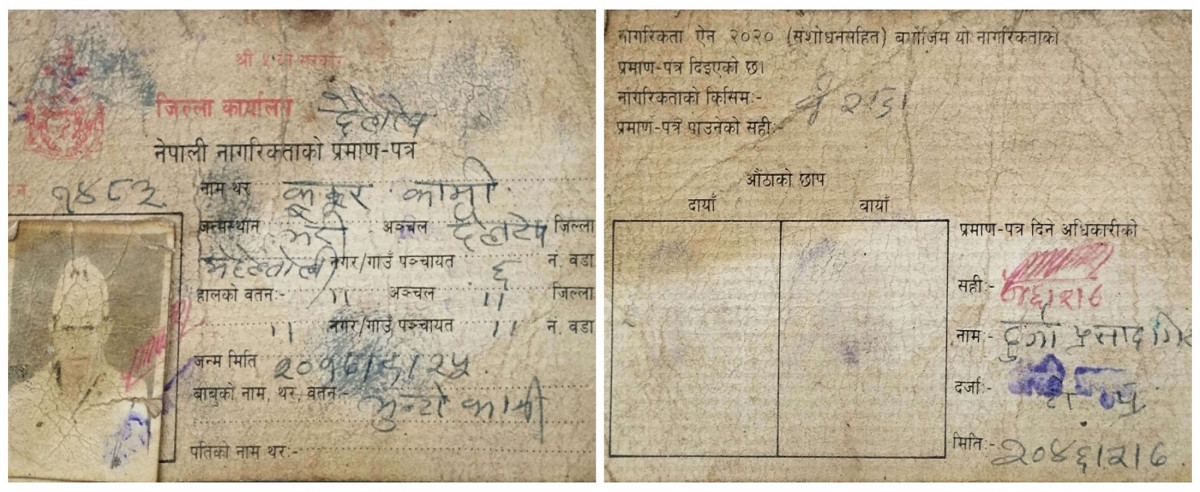 श्री ५ को सरकार
जिल्ला कार्यालय दैलेख
नेपाली नागरिकताको प्रमाण-पत्र
नं. १४८३ नाम थर कामी
जन्मस्थान भेरी अञ्चल दैलेख जिल्ला
नगर/गाउँ पञ्चायत ६ न. वडा
हालको वतन:- ,, अञ्चल ,, जिल्ला
,, नगर/गाउँ पञ्चायत ,, न. वडा
जन्म मिति
बाबुको नाम, थर, वतन:- कामी
पतिको नाम थर:-
नागरिकता ऐन २०२० (संशोधनसहित) बमोजिम यो नागरिकताको
प्रमाण-पत्र दिइएको छ।
नागरिकताको किसिम:-
प्रमाण-पत्र पाउनेको सही:-
औंठाको छाप
दायाँ बायाँ
प्रमाण-पत्र दिने अधिकारीको
सही:-
नाम:- दुर्गा प्रसाद गिरी
दर्जा:-
मिति:- २०४६।२।७